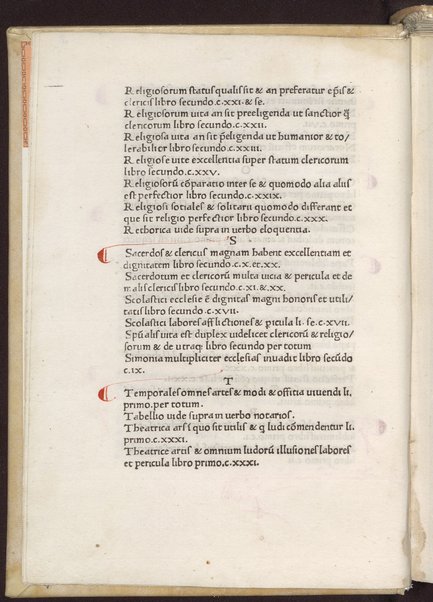 Religiosorum status qualis sit & an preferatur ep̃is &
clericis libro secundo.c.xxi.& se.
Religiosorum uita an sit preeligenda ut sanctior q̃
clericorum libro secundo.c.xxii.
Religiosa uita an sit p̃eligenda ut humanior & to/
lerabilior libro secundo.c.xxiii.
Religiose uite excellentia super statum clericorum
libro secundo.c.xxv.
Religiosorũ cõparatio inter se & quomodo alia aliis
est perfectior libro secundo.c.xxix.
Religiosi sotiales & solitarii quomodo differant et
que sit religio perfectior libro secundo.c.xxx.
Rethorica uide supra in uerbo eloquentia.
S
Sacerdos & clericus magnam habent excellentiam et
dignitatem libro secundo.c.x.et.xx.
Sacerdotum et clericorũ multa uicia & pericula et de
malis clericis libro secundo.c.xi.& xx.
Scolastici ecclesie ẽ dignitas magni honoris et utili/
tatis libro secundo.c.xvii.
Scolastici labores afflictiones & picula li.se.c.xvii.
Spũalis uita est duplex uidelicet clericorũ & religio/
sorum & de utraq; libro secundo per totum
Simonia multipliciter ecclesias inuadit libro secũdo
c.ix.
T
Temporales omnes artes & modi & offitia uiuendi li.
primo.per totum.
Tabellio uide supra in uerbo notarios.
Theatrica ars i quo sit utilis & q ludi cõmendentur li.
primo.c.xxxi.
Theatrice artis & omnium ludorũ illusiones labores
et pericula libro primo.c.xxxi.